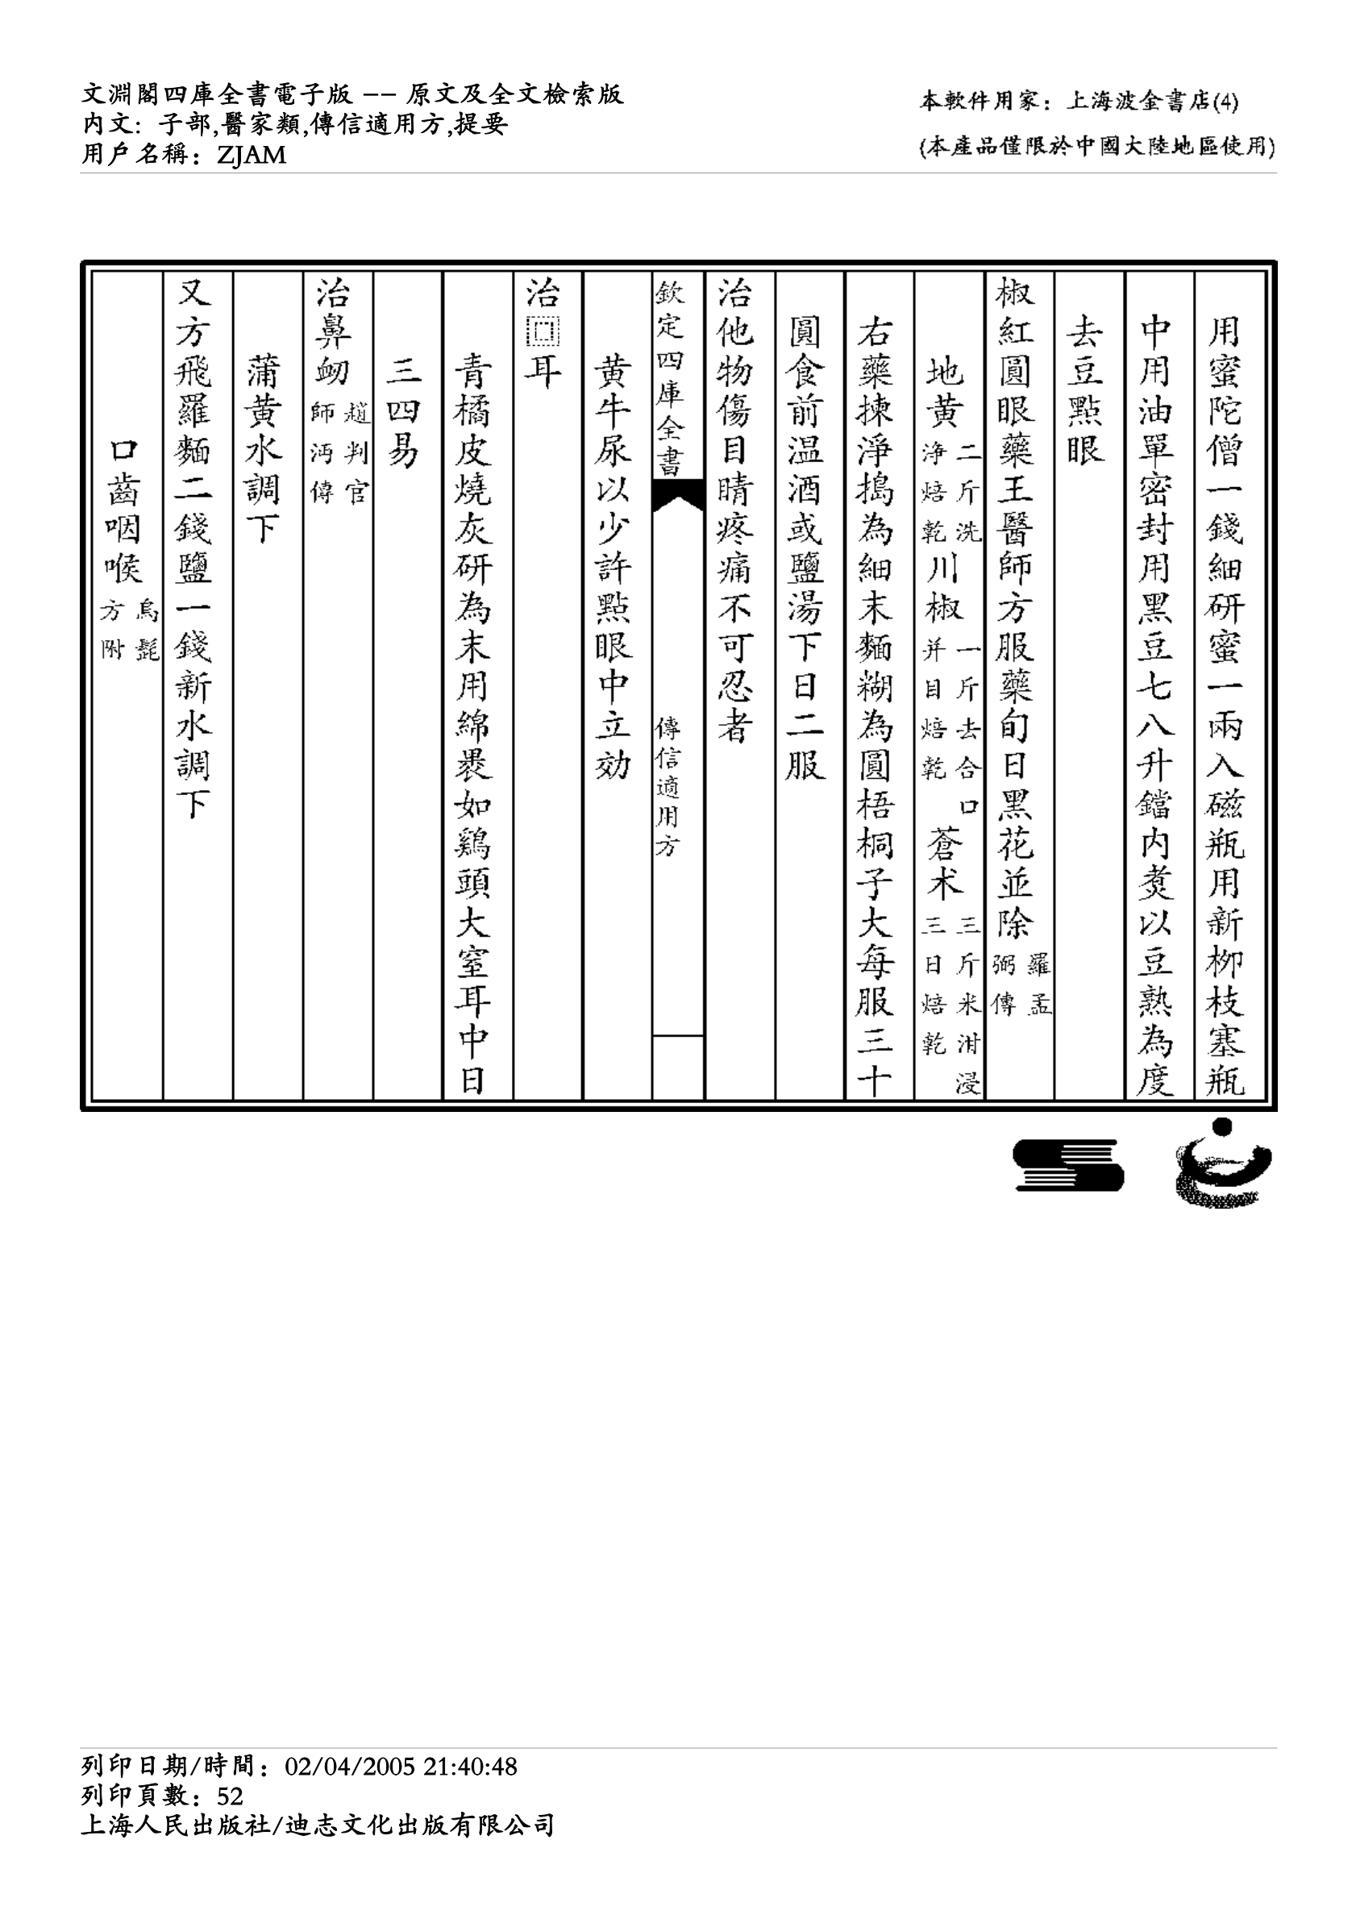 文淵閣四庫全書電子版 -- 原文及全文檢索版
內文: 子部,醫家類,傳信適用方,提要
用戶名稱: ZJAM
本軟件用家: 上海波金書店(4)
(本產品僅限於中國大陸地區使用)
用蜜陀僧一錢細研蜜一兩入磁瓶用新柳枝塞瓶
中用油單密封用黑豆七八升鐺内煑以豆熟為度
去豆點眼
椒紅圓眼藥王醫師方服藥旬日黑花並除羅孟弼傳
地黄二斤洗浄焙乾川椒一斤去合口并目焙乾蒼术三斤米泔浸三日焙乾
右藥揀淨搗為細末麵糊為圓梧桐子大每服三十
圓食前温酒或鹽湯下日二服
治他物傷目睛疼痛不可忍者
欽定四庫全書 傳信適用方
黄牛尿以少許點眼中立効
治□耳
青橘皮燒灰研為末用綿褁如鷄頭大窒耳中日
三四易
治鼻衂趙判官師沔傳
蒲黄水調下
又方飛羅麵二錢鹽一錢新水調下
口齒咽喉烏髭方附
列印日期/時間: 02/04/2005 21:40:48
列印頁數: 52
上海人民出版社/迪志文化出版有限公司